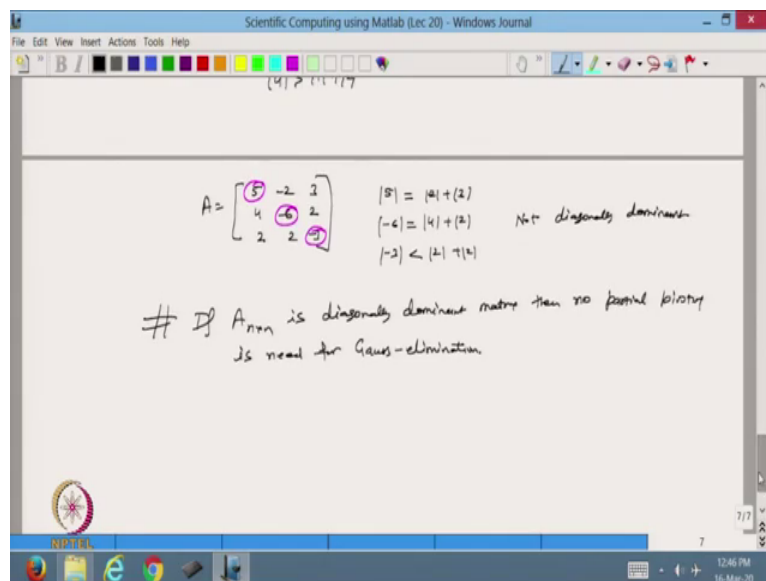 Scientific Computing using Matlab (Lec 20) - Windows Journal
File Edit View Insert Actions Tools Help
B I
A = [ 5 -2 3
4 -6 2
2 2 -3 ]
|5| = |2| + |3|
|-6| = |4| + |2| Not diagonally dominant
|-3| < |2| + |2|
# If A n×n is diagonally dominant matrix then no partial pivoting
is need for Gauss-elimination.
NPTEL
7/7
7
12:46 PM
16-Mar-20